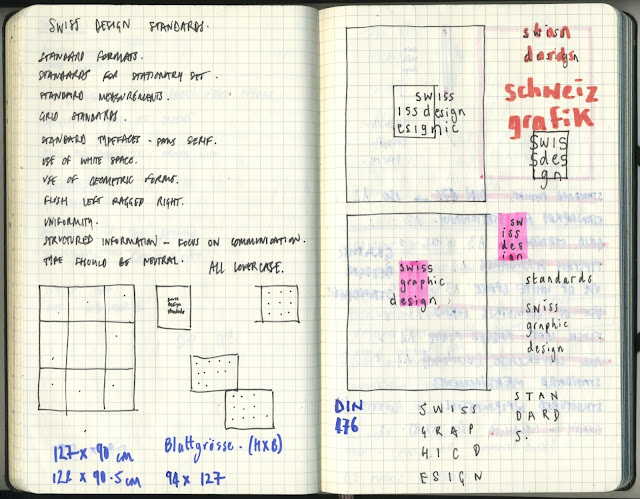 SWISS DESIGN STANDARDS.
STANDARD FORMATS.
STANDARDS FOR STATIONERY SET.
STANDARD MEASUREMENTS.
GRID STANDARDS.
STANDARD TYPEFACES - SANS SERIF.
USE OF WHITE SPACE.
USE OF GEOMETRIC FORMS.
FLUSH LEFT RAGGED RIGHT.
UNIFORMITY.
STRUCTURED INFORMATION - FOCUS ON COMMUNICATION.
TYPE SHOULD BE NEUTRAL.
ALL LOWERCASE.
swiss
design
standards
127 x 90 cm
128 x 90.5 cm
Blattgrösse. (HXB)
94 x 127
swiss
iss design
esignic
swiss
dards
design
schweiz
grafik
SWIS
Sdes
gn
swiss
graphic
design
sw
iss
des
ign
standards
swiss
graphic
design
DIN
476
SWISS
GRAP
HICD
ESIGN
STAN
DARD
S.